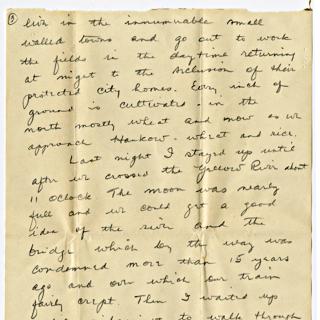 ③
live in the innumerable small
walled towns and go out to work
the fields in the daytime returning
at night to the seclusion of their
protected city homes. Every inch of
ground is cultivated - in the
north mostly wheat and now as we
approach Hankow - wheat and rice.
Last night I stayed up until
after we crossed the Yellow River about
11 oclock. The moon was nearly
full and we could get a good
idea of the river and the
bridge which by the way was
condemned more than 15 years
ago and over which our train
fairly crept. Then I waited up
to walk through